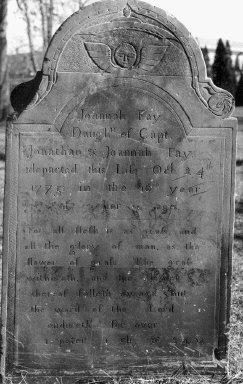 Joannah Fay
Daughr. of Capt.
Jonathan & Joannah Fay,
departed this Life Octr. 24th
177 in the 16th year
of her age.
For all flesh is as grass, and
all the glory of man, as the
flower of grass. The grass
withereth, and the flower
thereof falleth away: But
the word of the Lord
endureth for ever
1 ch.